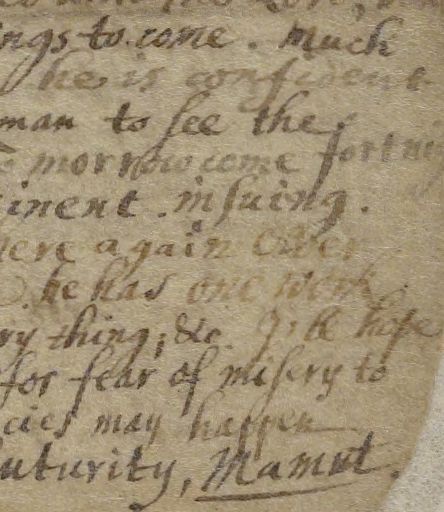 ings to come. Much
he is confident
man to see the
morrow come fort
inent. insuing.
here again Over
he has one work
ry thing, &c. I'le hope
for fear of misery to
cies may happen
uturity, Mamut.